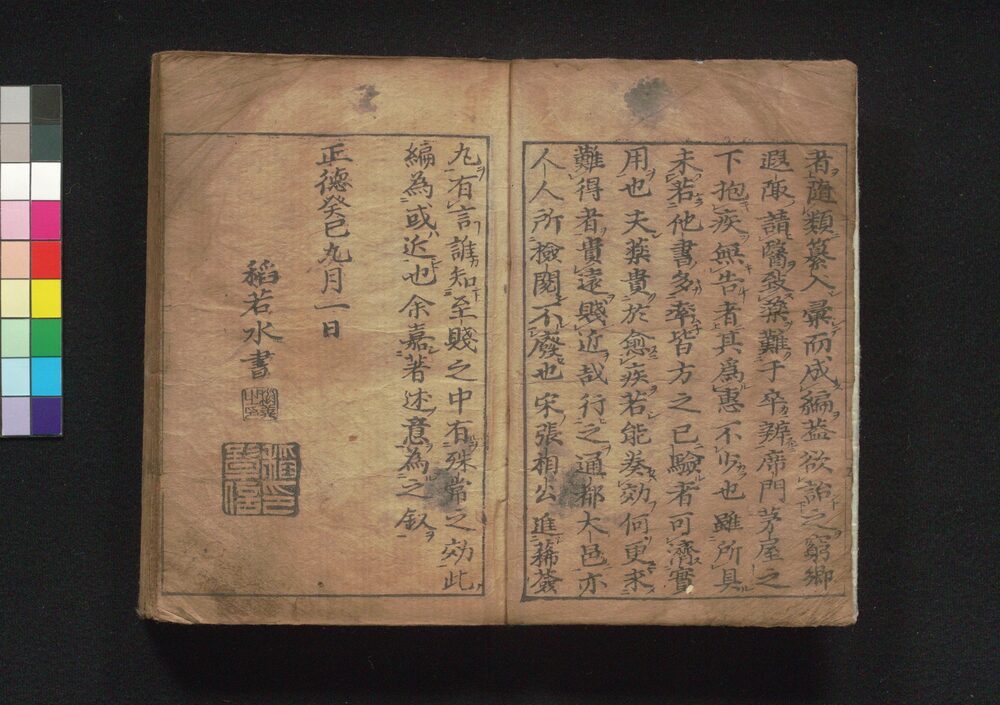 者随類纂入彙而成編蓋欲詒之窮郷
遐陬請醫致藥難于卒辨席門茅屋之
下抱疾無告者其為惠不少也雖所具
未若他書多率皆方之已驗者可濟實
用也夫藥貴於愈疾若能奏効何更求
難得者貴遠賤近哉行之通都大邑亦
人人所撿閲不廢也宋張相公進豨薟
丸有言誰知至賤之中有殊常之効此
編為或近也余嘉著述意為之叙
正德癸巳九月一日
稻若水書